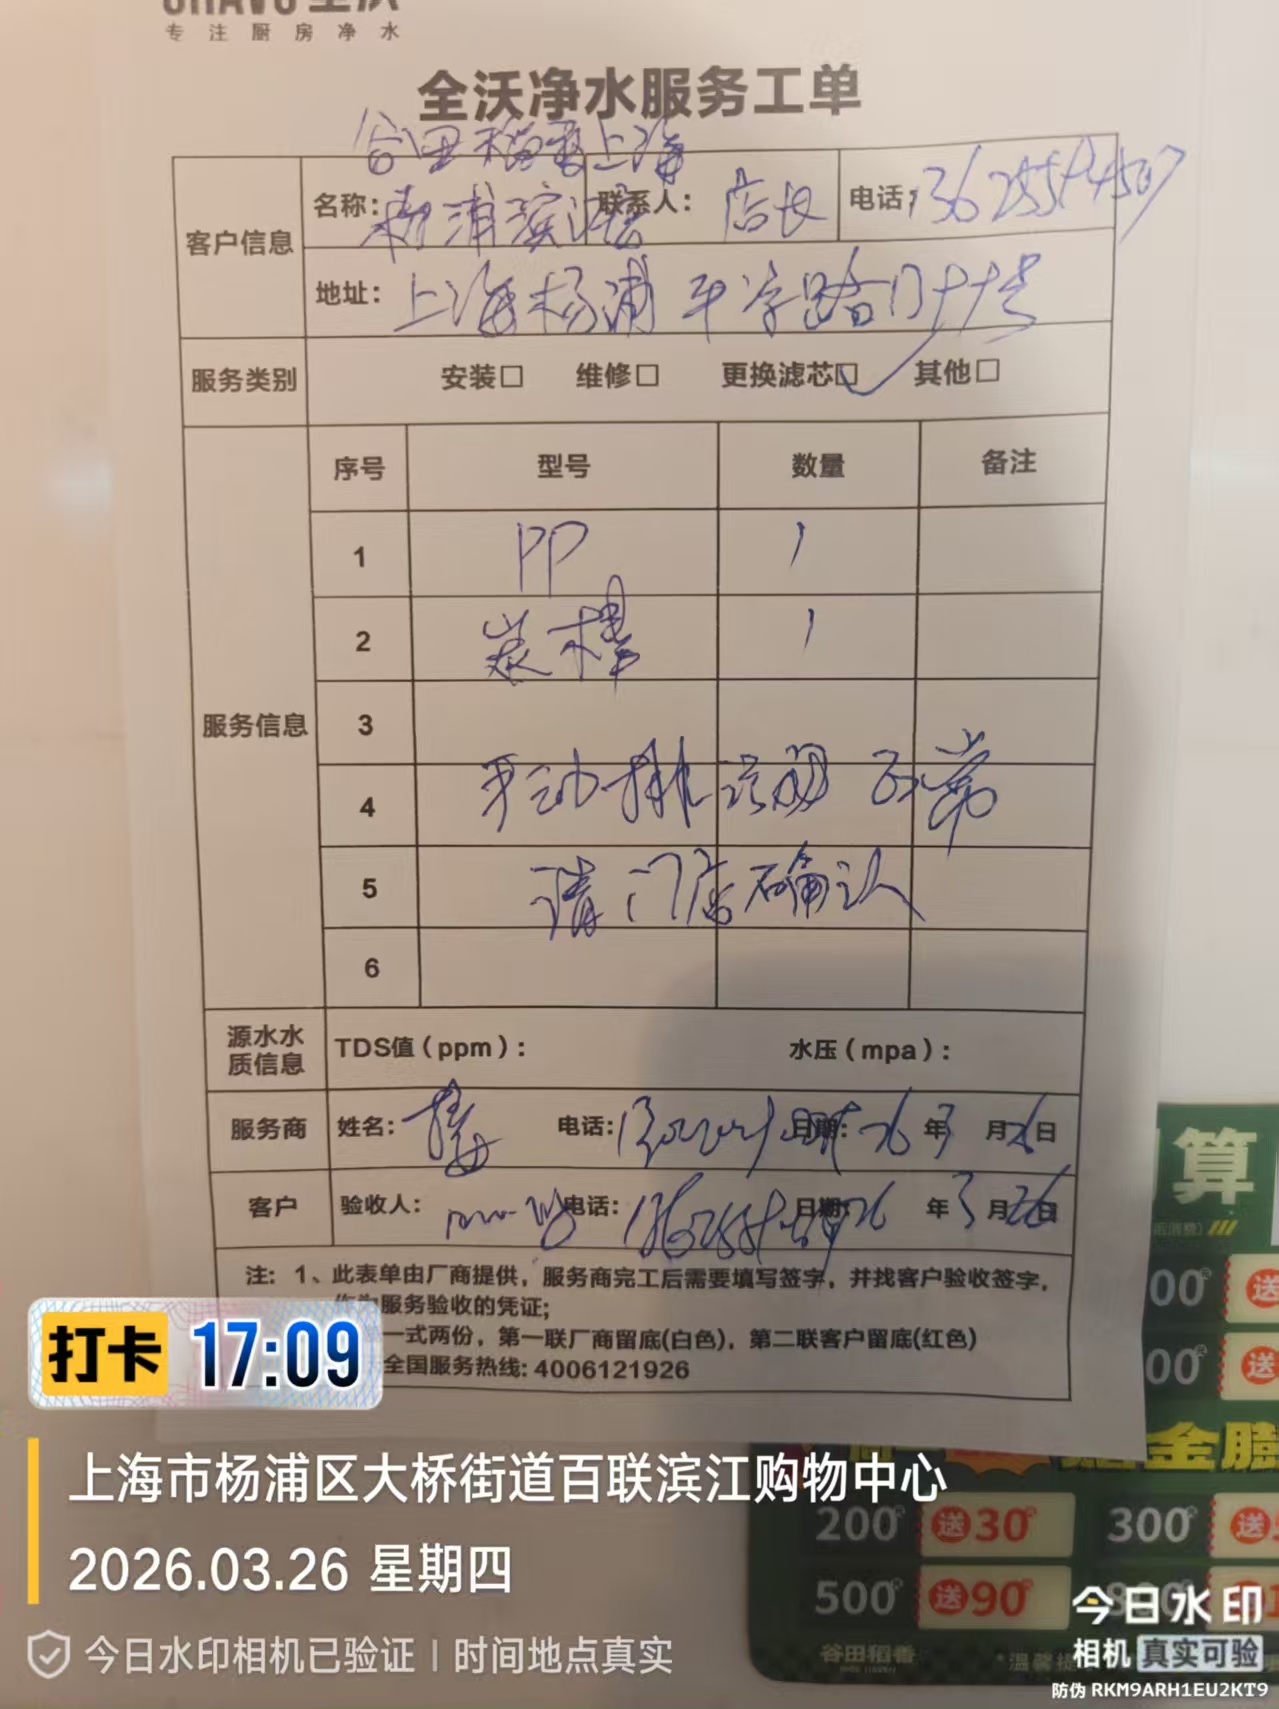 专注厨房净水
全沃净水服务工单
谷田稻香上海
客户信息 名称: 杨浦滨江店 联系人: 店长 电话:
地址: 上海杨浦 平凉路
服务类别 安装□ 维修□ 更换滤芯□✓ 其他□
服务信息 序号 型号 数量 备注
1 PP 1
2 炭棒 1
3
4 手动排污阀 正常
5 请门店确认
6
源水水质信息 TDS值(ppm): 水压(mpa):
服务商 姓名: 电话: 日期: 26年3月26日
客户 验收人: 电话: 日期: 26年3月26日
注: 1、此表单由厂商提供,服务商完工后需要填写签字,并找客户验收签字,
服务验收的凭证;
一式两份,第一联厂商留底(白色),第二联客户留底(红色)
全国服务热线: 4006121926
打卡 17:09
上海市杨浦区大桥街道百联滨江购物中心
2026.03.26 星期四
今日水印相机已验证 | 时间地点真实
算
200元 送30元 300元 送
500元 送90元
谷田稻香
今日水印
相机 真实可验
防伪 RKM9ARH1EU2KT9